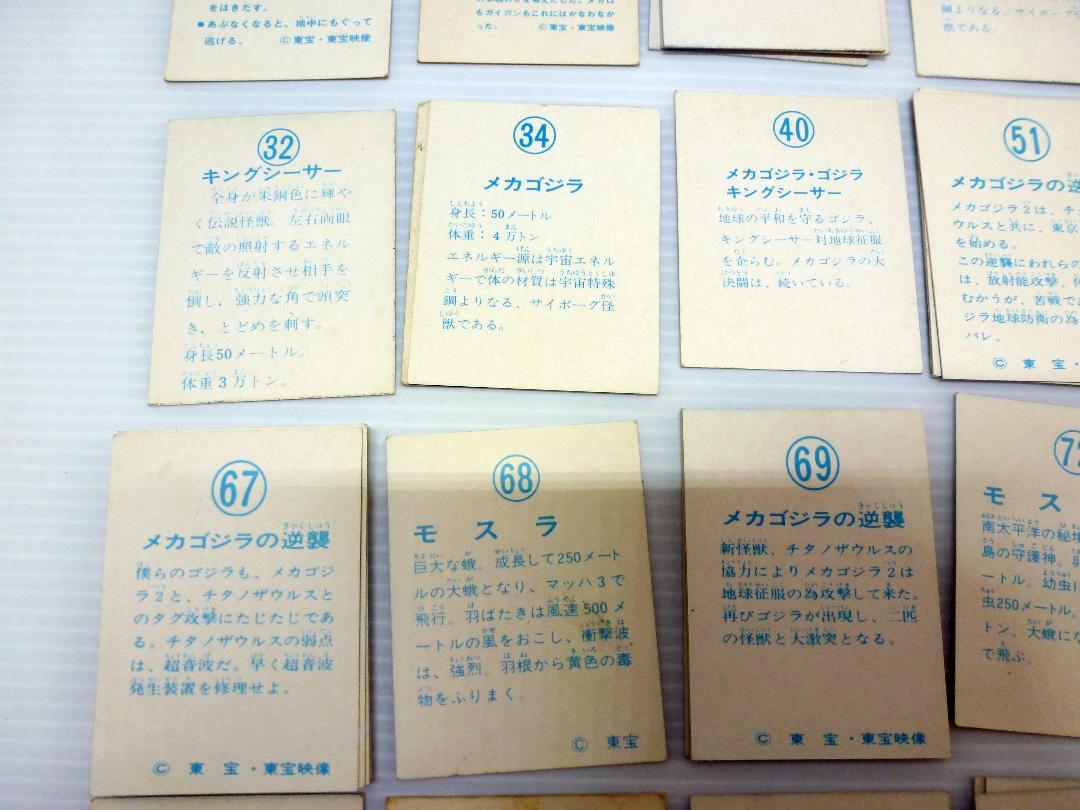 をはきだす。
●あぶなくなると、地中にもぐって
逃げる。 ©東宝・東宝映像
もガイガンもこれにはかなわなか
った。 ©東宝・東宝映像
獣である。
32
キングシーサー
全身が朱銅色に輝や
く伝説怪獣。左右両眼
で敵の照射するエネル
ギーを反射させ相手を
倒し、強力な角で頭突
き、とどめを刺す。
身長50メートル。
体重3万トン。
34
メカゴジラ
身長：50メートル
体重：4万トン
エネルギー源は宇宙エネル
ギーで体の材質は宇宙特殊
鋼よりなる、サイボーグ怪
獣である。
40
メカゴジラ・ゴジラ
キングシーサー
地球の平和を守るゴジラ、
キングシーサー対地球征服
を企らむ。メカゴジラの大
決闘は、続いている。
51
メカゴジラの逆
メカゴジラ2は、チ
ウルスと共に、東京
を始める。
この逆襲にわれらの
は、放射能攻撃、
むかうが、苦戦で
ジラ地球防衛の為
バレ。
© 東宝・
67
メカゴジラの逆襲
僕らのゴジラも、メカゴジ
ラ2と、チタノザウルスと
のタグ攻撃にたじたじであ
る。チタノザウルスの弱点
は、超音波だ。早く超音波
発生装置を修理せよ。
© 東宝・東宝映像
68
モスラ
巨大な蛾。成長して250メート
ルの大蛾となり、マッハ3で
飛行。羽ばたきは風速500メ
ートルの風をおこし、衝撃波
は、強烈。羽根から黄色の毒
物をふりまく。
© 東宝
69
メカゴジラの逆襲
新怪獣、チタノザウルスの
協力によりメカゴジラ2は
地球征服の為攻撃して来た。
再びゴジラが出現し、二匹
の怪獣と大激突となる。
© 東宝・東宝映像
モス
南太平洋の秘境
島の守護神。
ートル。幼虫
虫250メートル。
トン。大蛾にな
で飛ぶ。